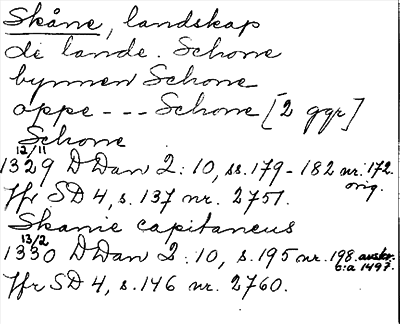 Skåne, landskap
di lande. Schone
bynnen Schone
oppe --- Schone [2 ggr]
Schone
12/11
1329 DDan 2:10, ss. 179-182 nr. 172.
orig.
Jfr SD 4, s. 137 nr. 2751.
Skanie capitaneus
13/2
1330 DDan 2:10, s. 195 nr. 198. avskr.
b:a 1497.
Jfr SD 4, s. 146 nr. 2760.